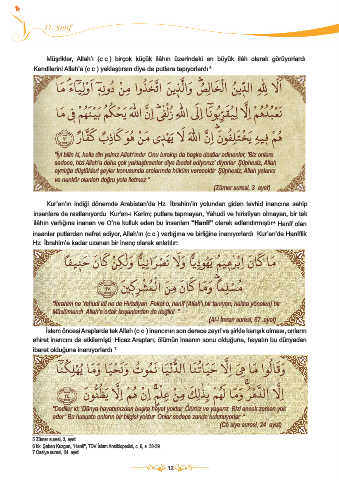 11. SINIF
Müşrikler, Allah'ı (c c ) birçok küçük ilâhın üzerindeki en büyük ilâh olarak görüyorlardı
Kendilerini Allah'a (c c ) yaklaştırsın diye de putlara tapıyorlardı ⁵
اَلَا لِلّٰهِ الدّ۪ينُ الْخَالِصُۜ وَالَّذ۪ينَ اتَّخَذُوا مِنْ دُونِه۪ٓ اَوْلِيَٓاءَۢ مَا
نَعْبُدُهُمْ اِلَّا لِيُقَرِّبُونَٓا اِلَى اللّٰهِ زُلْفٰىۜ اِنَّ اللّٰهَ يَحْكُمُ بَيْنَهُمْ ف۪ي مَا
هُمْ ف۪يهِ يَخْتَلِفُونَۜ اِنَّ اللّٰهَ لَا يَهْد۪ي مَنْ هُوَ كَاذِبٌ كَفَّارٌ
"İyi bilin ki, halis din yalnız Allah'ındır Onu bırakıp da başka dostlar edinenler, 'Biz onlara
sadece, bizi Allah'a daha çok yaklaştırsınlar diye ibadet ediyoruz' diyorlar Şüphesiz, Allah
ayrılığa düştükleri şeyler konusunda aralarında hüküm verecektir Şüphesiz, Allah yalancı
ve nankör olanları doğru yola iletmez "
(Zümer suresi, 3 ayet)
Kur'an'ın indiği dönemde Arabistan'da Hz İbrahim'in yolundan giden tevhid inancına sahip
insanlara da rastlanıyordu Kur'an-ı Kerim; putlara tapmayan, Yahudi ve hristiyan olmayan, bir tek
ilâhın varlığına inanan ve O'na kulluk eden bu insanları "Hanîf" olarak adlandırmıştır⁶ Hanîf olan
insanlar putlardan nefret ediyor, Allah'ın (c c ) varlığına ve birliğine inanıyorlardı Kur'an'da Hanîflik
Hz İbrahim'e kadar uzanan bir inanç olarak anlatılır:
مَا كَانَ اِبْرٰه۪يمُ يَهُودِيًّا وَلَا نَصْرَانِيًّا وَلٰكِنْ كَانَ حَن۪يفًا
مُسْلِمًاۜ وَمَا كَانَ مِنَ الْمُشْرِك۪ينَ
"İbrahim ne Yahudi idi ne de Hıristiyan Fakat o, hanif (Allah'ı bir tanıyan, hakka yönelen) bir
Müslümandı Allah'a ortak koşanlardan da değildi "
(Al-i İmran suresi, 67 ayet)
İslam öncesi Araplarda tek Allah (c c ) inancının son derece zayıf ve şirkle karışık olması, onların
ahiret inancını da etkilemişti Hicaz Arapları, ölümün insanın sonu olduğuna, hayatın bu dünyadan
ibaret olduğuna inanıyorlardı ⁷
وَقَالُوا مَا هِيَ اِلَّا حَيَاتُنَا الدُّنْيَا نَمُوتُ وَنَحْيَا وَمَا يُهْلِكُنَٓا
اِلَّا الدَّهْرُۚ وَمَا لَهُمْ بِذٰلِكَ مِنْ عِلْمٍۚ اِنْ هُمْ اِلَّا يَظُنُّونَ
"Dediler ki: 'Dünya hayatımızdan başka hayat yoktur Ölürüz ve yaşarız Bizi ancak zaman yok
eder' Bu hususta onların bir bilgisi yoktur Onlar sadece zanda bulunuyorlar "
(Câsiye suresi, 24 ayet)
5 Zümer suresi, 3, ayet
6 Bk Şaban Kuzgun, "Hanîf", TDV İslam Ansiklopedisi, c
7 Casiye suresi, 24 ayet
12